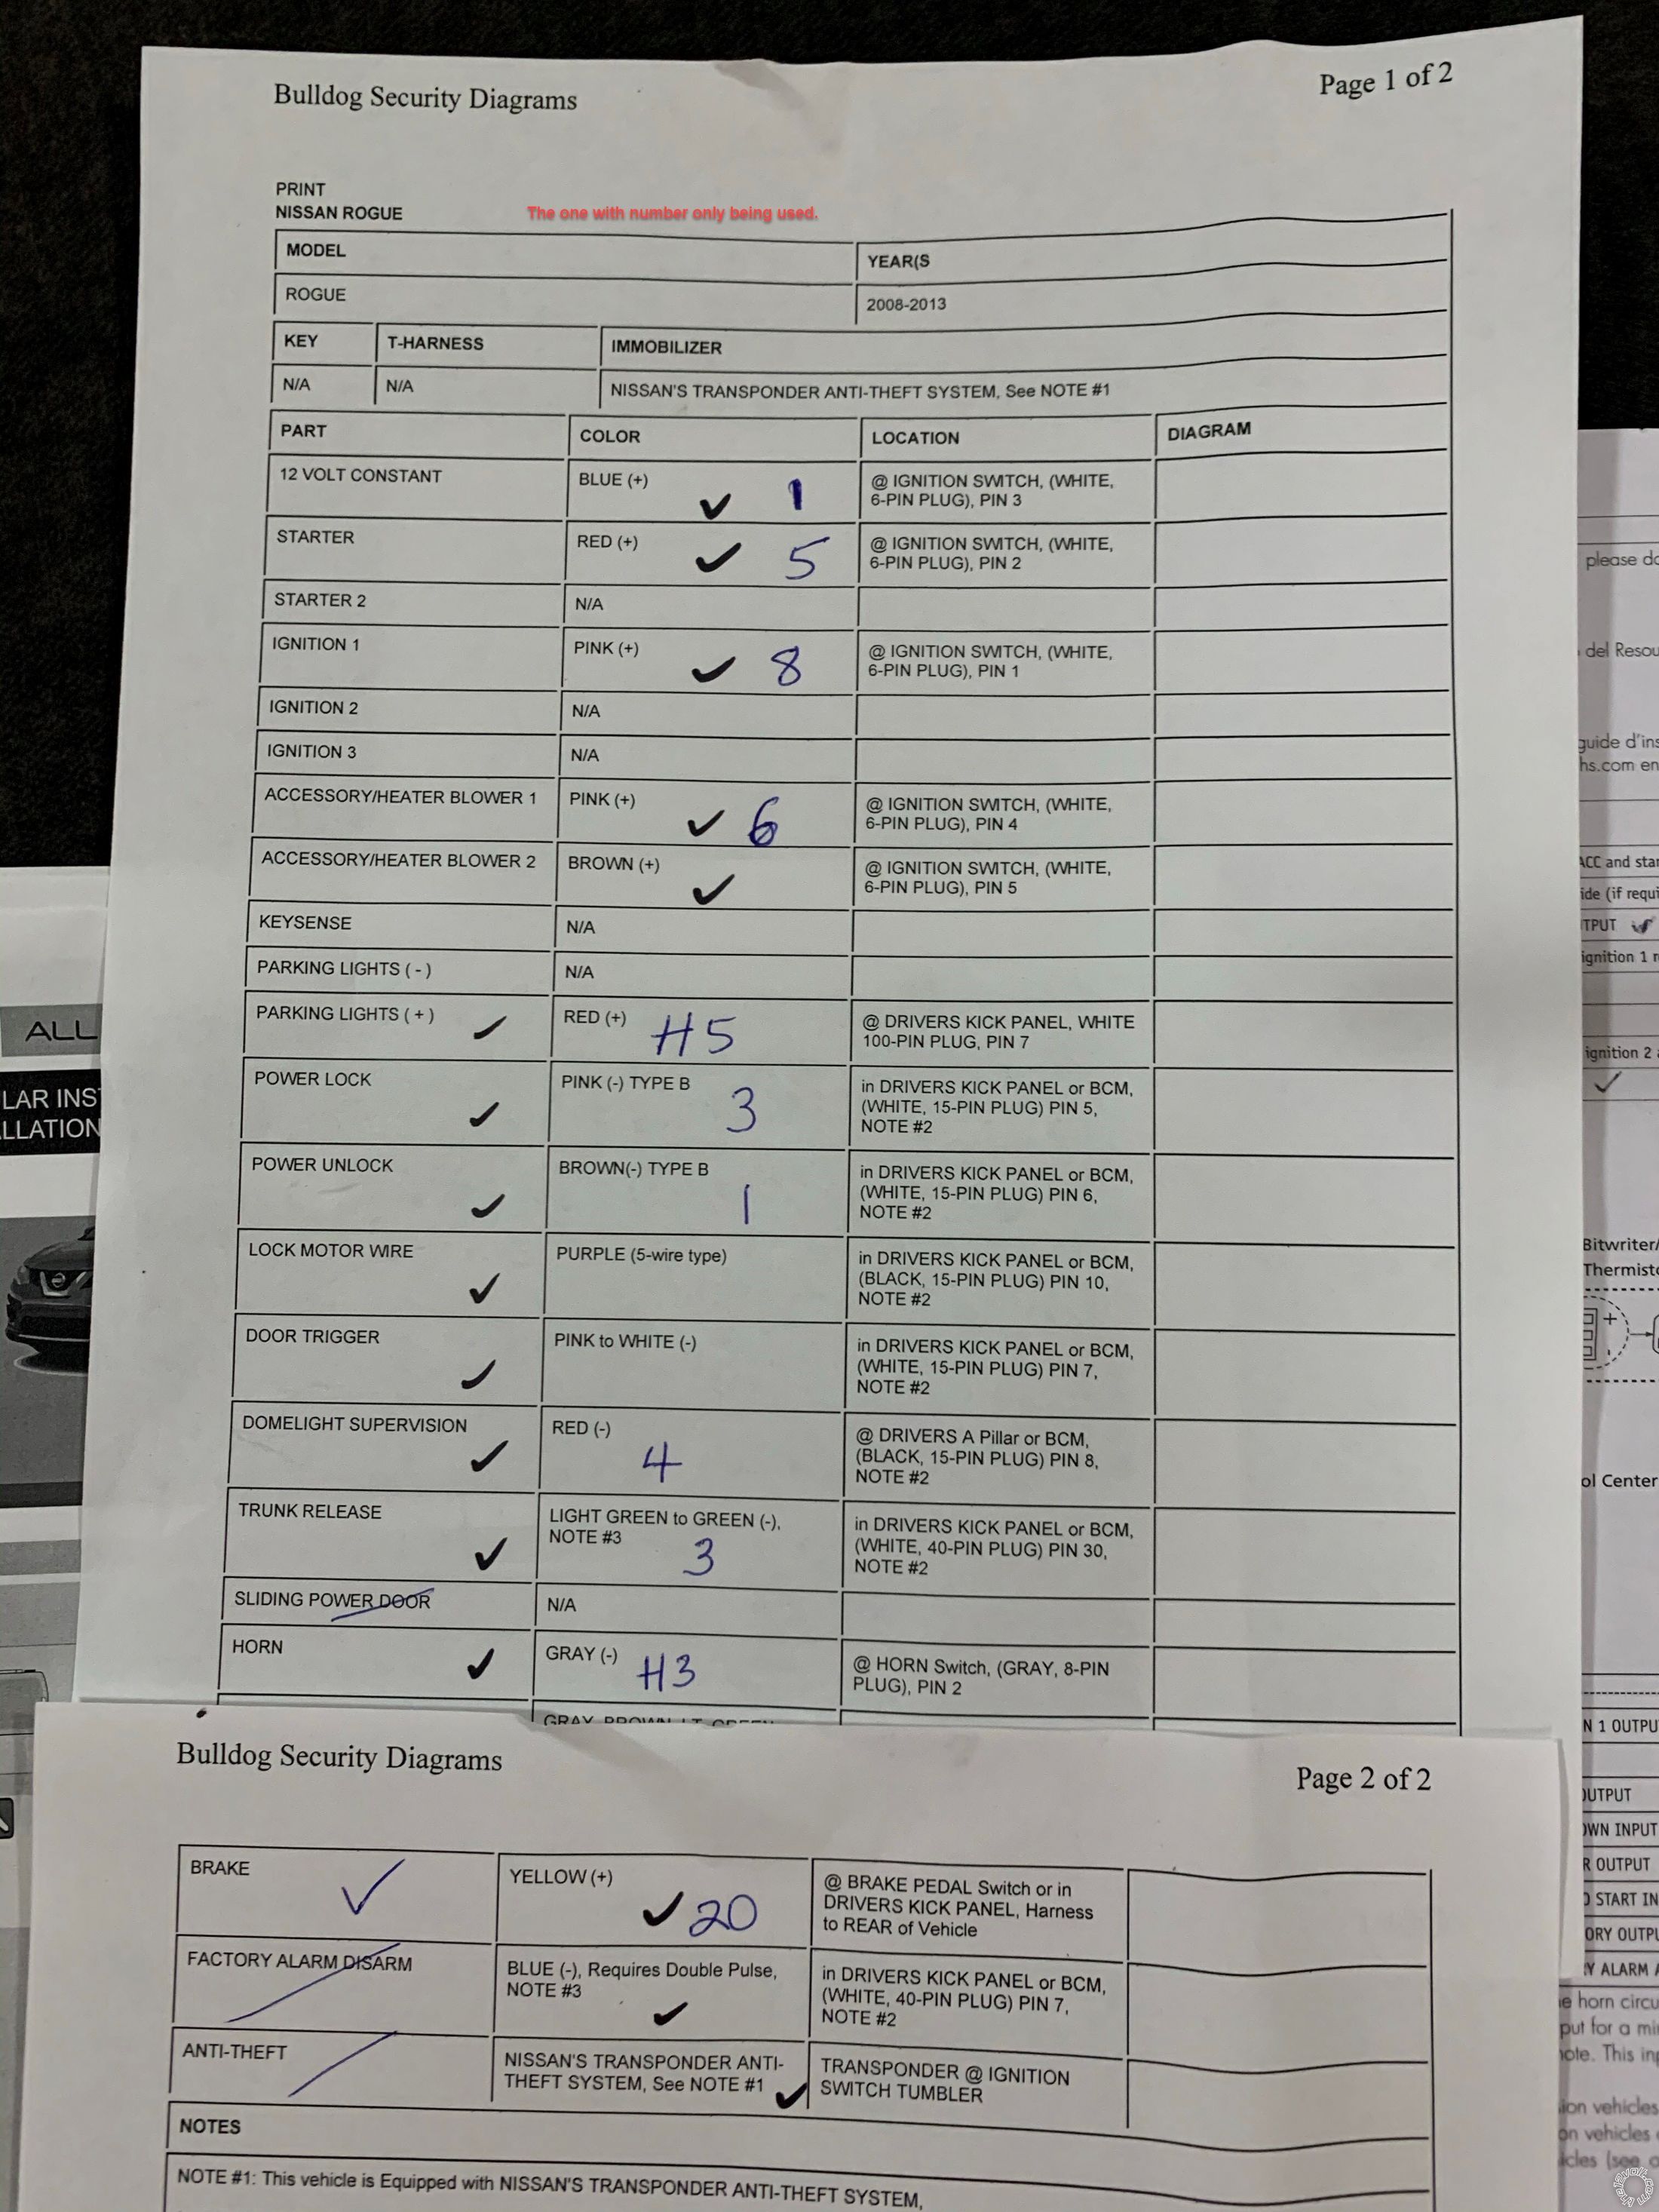 Bulldog Security Diagrams
Page 1 of 2
PRINT
NISSAN ROGUE
The one with number only being used.
MODEL
YEAR(S
ROGUE
2008-2013
KEY
T-HARNESS
IMMOBILIZER
N/A
N/A
NISSAN'S TRANSPONDER ANTI-THEFT SYSTEM, See NOTE #1
PART
COLOR
LOCATION
DIAGRAM
12 VOLT CONSTANT
BLUE (+)
✓ 1
@ IGNITION SWITCH, (WHITE,
6-PIN PLUG), PIN 3
STARTER
RED (+)
✓ 5
@ IGNITION SWITCH, (WHITE,
6-PIN PLUG), PIN 2
STARTER 2
N/A
IGNITION 1
PINK (+)
✓ 8
@ IGNITION SWITCH, (WHITE,
6-PIN PLUG), PIN 1
IGNITION 2
N/A
IGNITION 3
N/A
ACCESSORY/HEATER BLOWER 1
PINK (+)
✓ 6
@ IGNITION SWITCH, (WHITE,
6-PIN PLUG), PIN 4
ACCESSORY/HEATER BLOWER 2
BROWN (+)
✓
@ IGNITION SWITCH, (WHITE,
6-PIN PLUG), PIN 5
KEYSENSE
N/A
PARKING LIGHTS ( - )
N/A
PARKING LIGHTS ( + )
✓
RED (+)
H5
@ DRIVERS KICK PANEL, WHITE
100-PIN PLUG, PIN 7
POWER LOCK
✓
PINK (-) TYPE B
3
in DRIVERS KICK PANEL or BCM,
(WHITE, 15-PIN PLUG) PIN 5,
NOTE #2
POWER UNLOCK
✓
BROWN(-) TYPE B
1
in DRIVERS KICK PANEL or BCM,
(WHITE, 15-PIN PLUG) PIN 6,
NOTE #2
LOCK MOTOR WIRE
✓
PURPLE (5-wire type)
in DRIVERS KICK PANEL or BCM,
(BLACK, 15-PIN PLUG) PIN 10,
NOTE #2
DOOR TRIGGER
✓
PINK to WHITE (-)
in DRIVERS KICK PANEL or BCM,
(WHITE, 15-PIN PLUG) PIN 7,
NOTE #2
DOMELIGHT SUPERVISION
✓
RED (-)
4
@ DRIVERS A Pillar or BCM,
(BLACK, 15-PIN PLUG) PIN 8,
NOTE #2
TRUNK RELEASE
✓
LIGHT GREEN to GREEN (-),
NOTE #3
3
in DRIVERS KICK PANEL or BCM,
(WHITE, 40-PIN PLUG) PIN 30,
NOTE #2
SLIDING POWER DOOR
N/A
HORN
✓
GRAY (-)
H3
@ HORN Switch, (GRAY, 8-PIN
PLUG), PIN 2
Bulldog Security Diagrams
Page 2 of 2
BRAKE
✓
YELLOW (+)
✓ 20
@ BRAKE PEDAL Switch or in
DRIVERS KICK PANEL, Harness
to REAR of Vehicle
FACTORY ALARM DISARM
BLUE (-), Requires Double Pulse,
NOTE #3
✓
in DRIVERS KICK PANEL or BCM,
(WHITE, 40-PIN PLUG) PIN 7,
NOTE #2
ANTI-THEFT
NISSAN'S TRANSPONDER ANTI-
THEFT SYSTEM, See NOTE #1
✓
TRANSPONDER @ IGNITION
SWITCH TUMBLER
NOTES
NOTE #1: This vehicle is Equipped with NISSAN'S TRANSPONDER ANTI-THEFT SYSTEM,
ALL
LAR INS
LLATION
please do
del Resou
guide d'ins
hs.com en
ACC and star
ide (if requi
TPUT ✓
ignition 1 r
ignition 2
✓
Bitwriter/
Thermisto
ol Center
N 1 OUTPU
OUTPUT
OWN INPUT
R OUTPUT
START IN
ORY OUTPU
Y ALARM A
e horn circu
put for a mi
note. This in
ion vehicles
on vehicles
icles (see